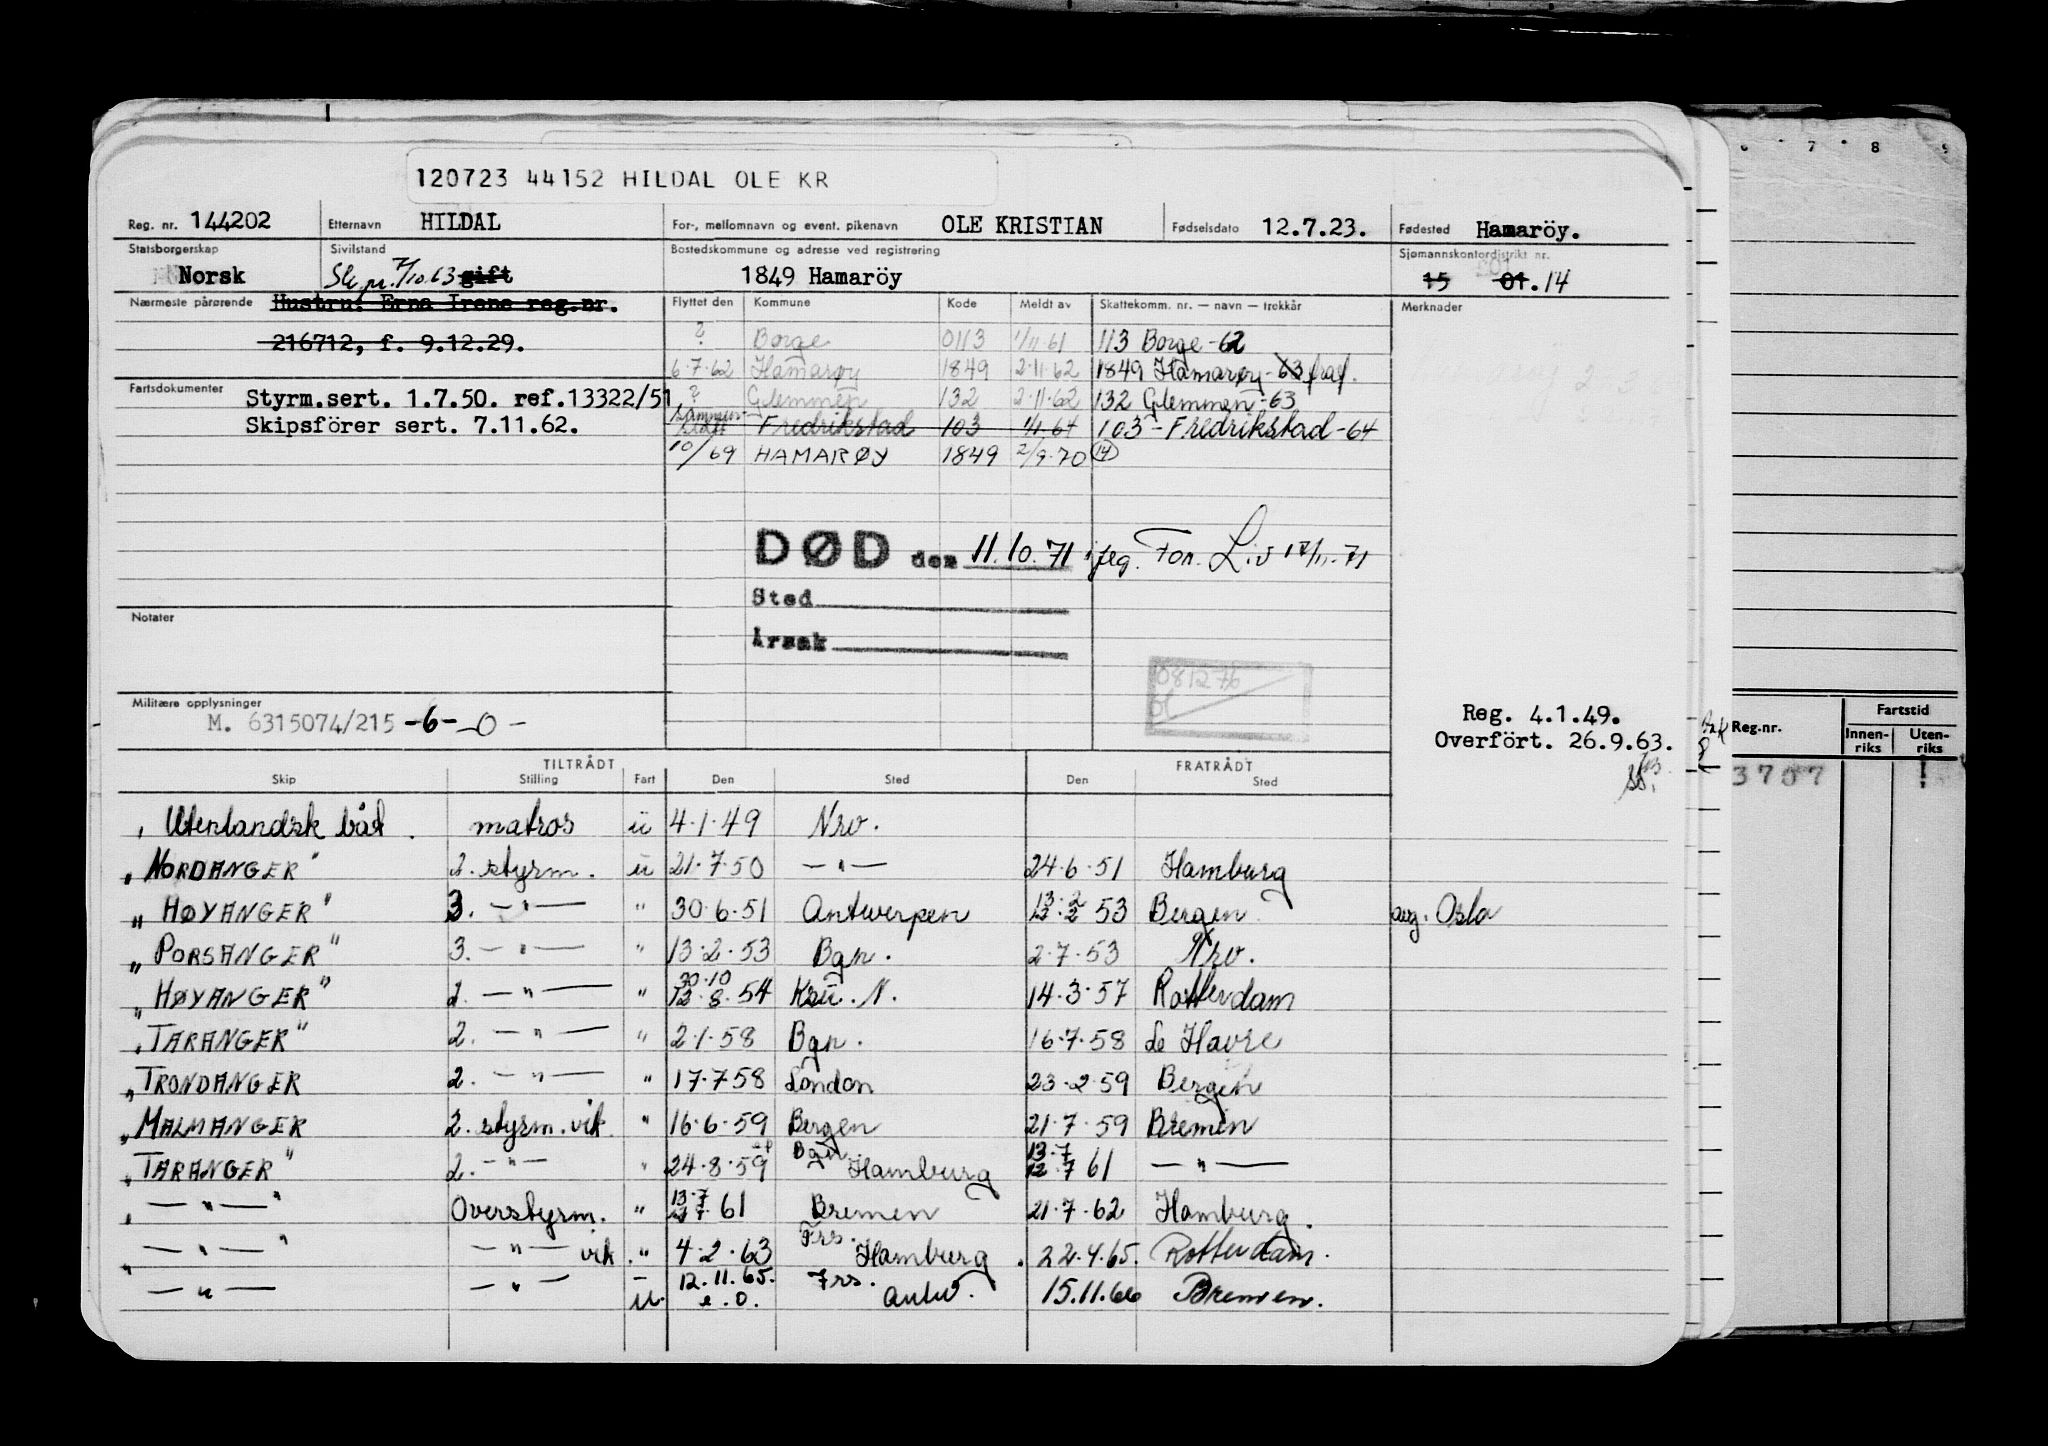 120723 44152 HILDAL OLE KR
Reg. nr. 144202 Etternavn HILDAL For-, mellomnavn og event. pikenavn OLE KRISTIAN Fødselsdato 12.7.23. Fødested Hamaröy.
Statsborgerskap Sivilstand Bostedskommune og adresse ved registrering Sjømannskontordistrikt nr.
Norsk 7/10 63 gift 1849 Hamaröy 15 01. 14
Nærmeste pårørende Hustru: Erna Irene reg.nr. Flyttet den Kommune Kode Meldt av Skattekomm. nr. — navn — trekkår Merknader
216712, f. 9.12.29. ? Borge 0113 1/11-61 113 Borge-62
6.7.62 Hamarøy 1849 2.11.62 1849 Hamarøy-63 fraf.
Fartsdokumenter Styrm.sert. 1.7.50. ref.13322/51. ? Glemmen 132 2.11.62 132 Glemmen-63
Skipsförer sert. 7.11.62. Fredrikstad 103 1/1.64 103-Fredrikstad-64
10/69 HAMARØY 1849 2/9.70 14
DØD den 11.10.71
Sted
Årsak
Notater
081276
Militære opplysninger
M. 6315074/215 -6- -0-
Reg. 4.1.49.
Overfört. 26.9.63.
TILTRÅDT FRATRÅDT
Skip Stilling Fart Den Sted Den Sted
Utenlandsk båt. matros u 4.1.49 Nrv.
"NORDANGER" 2. styrm. u 21.7.50 —"— 24.6.51 Hamburg
"HØYANGER" 3. —"— " 30.6.51 Antwerpen 13.2 12.2 53 Bergen avg. Oslo
"PORSANGER" 3. —"— " 13.2.53 Bgn. 2.7.53 Nrv.
"HØYANGER" 2. —"— " 30.10 12.8.54 Ksu. N. 14.3.57 Rotterdam
"TARANGER" 2. —"— " 2.1.58 Bgn. 16.7.58 Le Havre
"TRONDANGER 2. —"— " 17.7.58 London 23.2.59 Bergen
"MALMANGER 2. styrm. vik " 16.6.59 Bergen 21.7.59 Bremen
"TARANGER" 2. —"— " 24.8.59 Bgn Hamburg 13.7 12.7 61 —"—
—"— Overstyrm. " 13.7 61 Bremen 21.7.62 Hamburg.
—"— —"— vik. " 4.2.63 Frs. Hamburg 22.4.65. Rotterdam.
—"— —"— U. 12.11.65. e.o. Frs. Antw. 15.11.66 Bremen.
6 7 8 9
Reg.nr. Fartstid
Innenriks Utenriks
3707